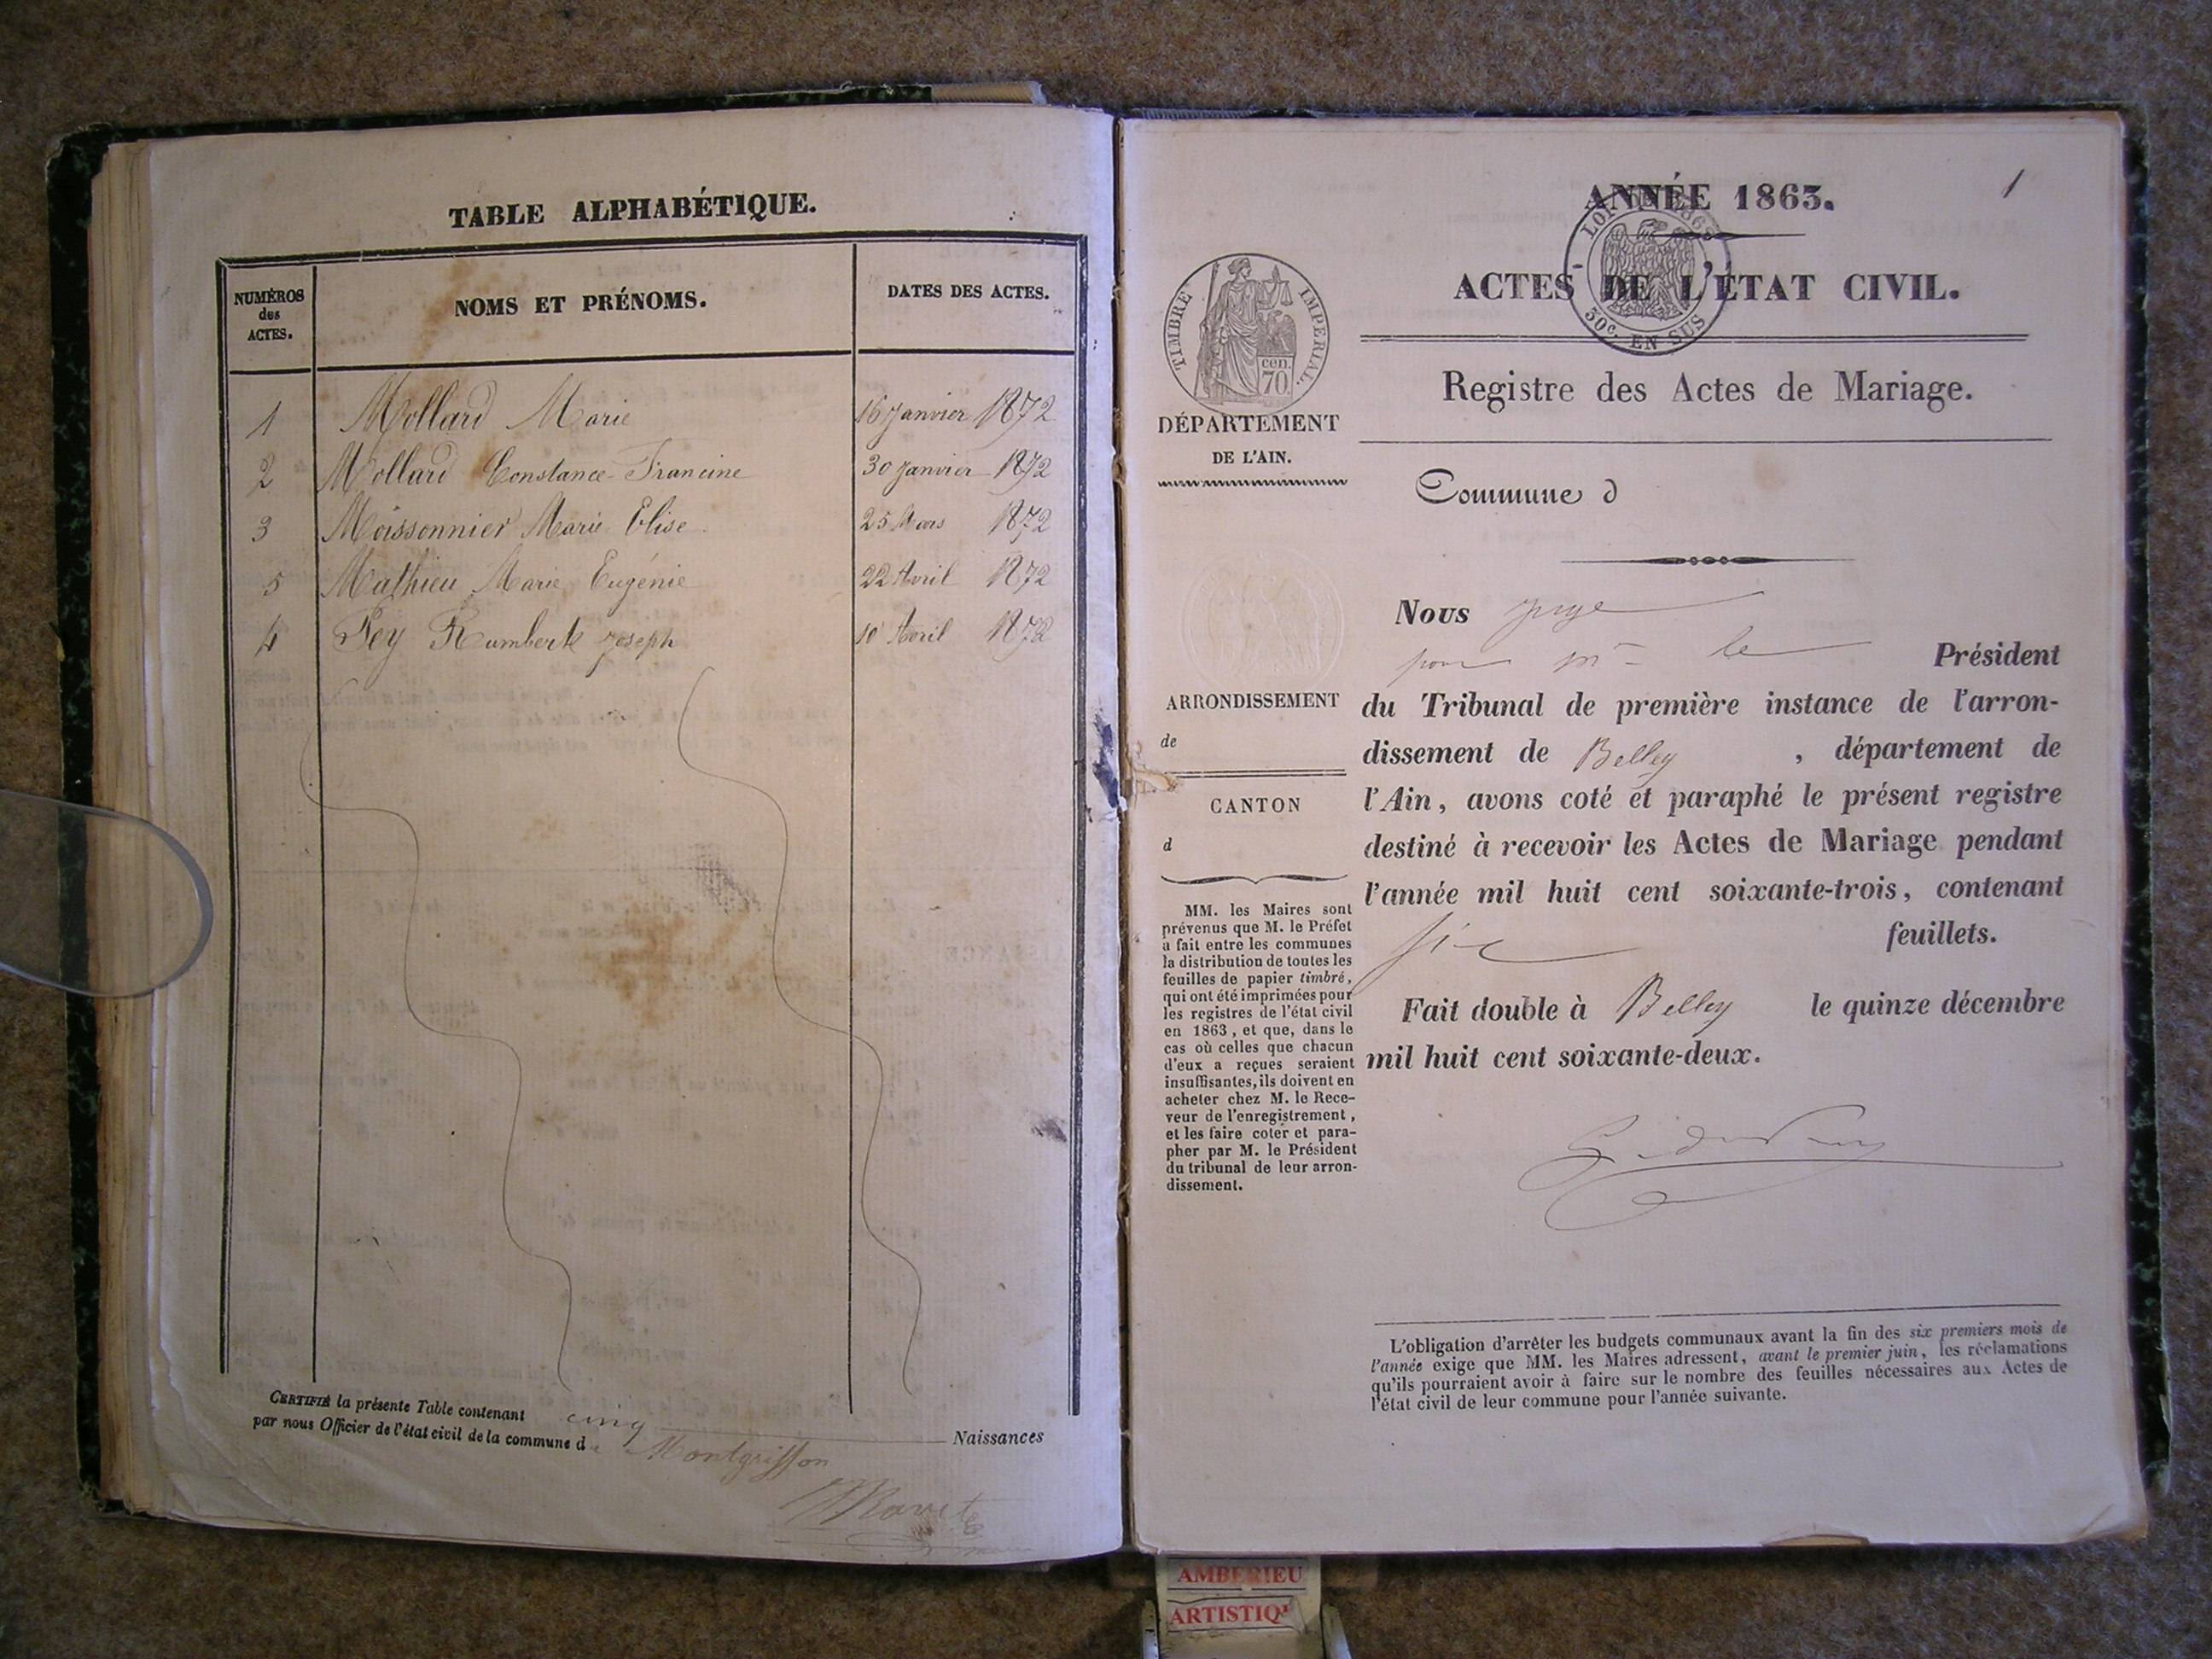 TABLE ALPHABÉTIQUE.
NUMÉROS des ACTES.
NOMS ET PRÉNOMS.
DATES DES ACTES.
1 Mollard Marie 16 Janvier 1872
2 Mollard Constance Francine 30 Janvier 1872
3 Moissonnier Marie Elise 25 Mars 1872
5 Mathieu Marie Eugénie 22 Avril 1872
4 Fey Rambert Joseph 10 Avril 1872
CERTIFIÉ la présente Table contenant cinq Naissances
par nous Officier de l'état civil de la commune de Montgriffon
1
ANNÉE 1863.
30c. EN SUS
ACTES DE L'ÉTAT CIVIL.
Registre des Actes de Mariage.
TIMBRE IMPÉRIAL.
cen.
70.
DÉPARTEMENT
DE L'AIN.
Commune d
Nous juge
pour Mr le Président
du Tribunal de première instance de l'arron-
dissement de Belley , département de
l'Ain, avons coté et paraphé le présent registre
destiné à recevoir les Actes de Mariage pendant
l'année mil huit cent soixante-trois, contenant
six feuillets.
Fait double à Belley le quinze décembre
mil huit cent soixante-deux.
ARRONDISSEMENT
de
CANTON
d
MM. les Maires sont
prévenus que M. le Préfet
a fait entre les communes
la distribution de toutes les
feuilles de papier timbré,
qui ont été imprimées pour
les registres de l'état civil
en 1863, et que, dans le
cas où celles que chacun
d'eux a reçues seraient
insuffisantes, ils doivent en
acheter chez M. le Rece-
veur de l'enregistrement,
et les faire coter et para-
pher par M. le Président
du tribunal de leur arron-
dissement.
L'obligation d'arrêter les budgets communaux avant la fin des six premiers mois de
l'année exige que MM. les Maires adressent, avant le premier juin, les réclamations
qu'ils pourraient avoir à faire sur le nombre des feuilles nécessaires aux Actes de
l'état civil de leur commune pour l'année suivante.
AMBERIEU